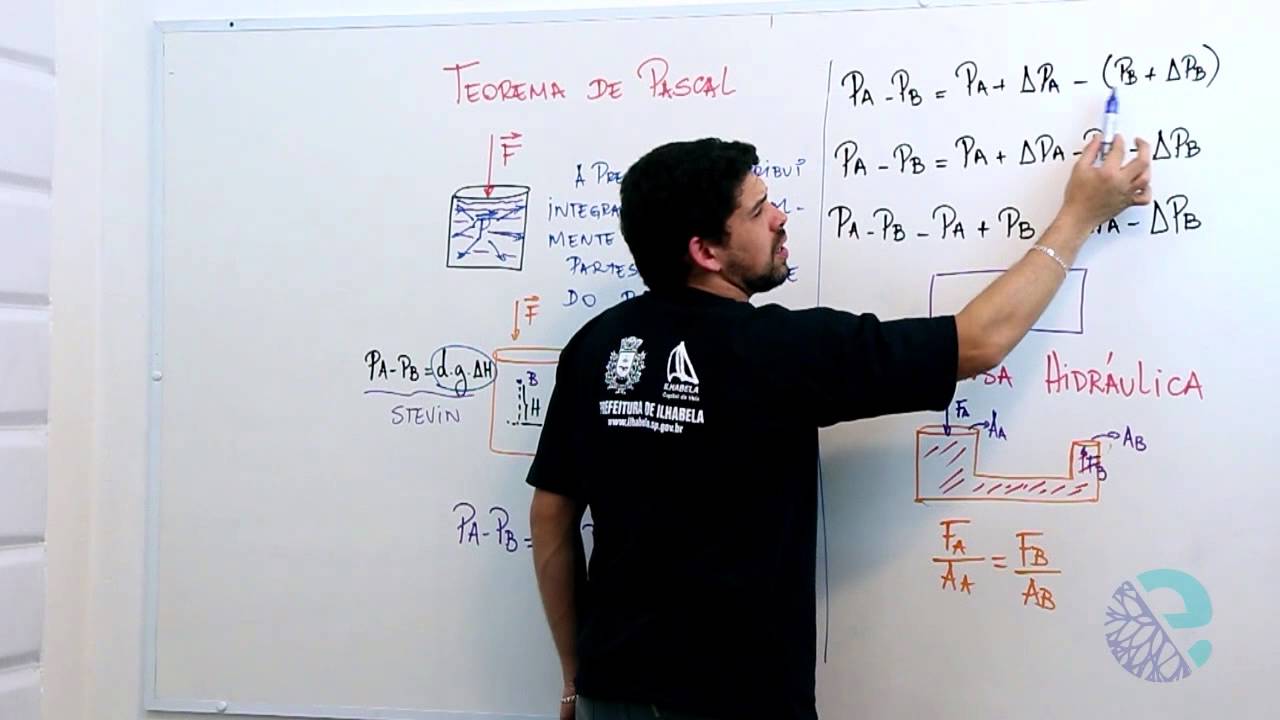 TEOREMA DE PASCAL
F
P
A
INTEGRA
MENTE
PARTES
DO
F
PA - PB = d.g.ΔH
STEVIN
B
H
PA - PB =
PA - PB = PA + ΔPA - (PB + ΔPB)
PA - PB = PA + ΔPA - ΔPB
PA - PB - PA + PB - ΔPB
HIDRÁULICA
FA
AA
AB
FB
FA/AA = FB/AB
ILHABELA
Capital da Vela
PREFEITURA DE ILHABELA
www.ilhabela.sp.gov.br